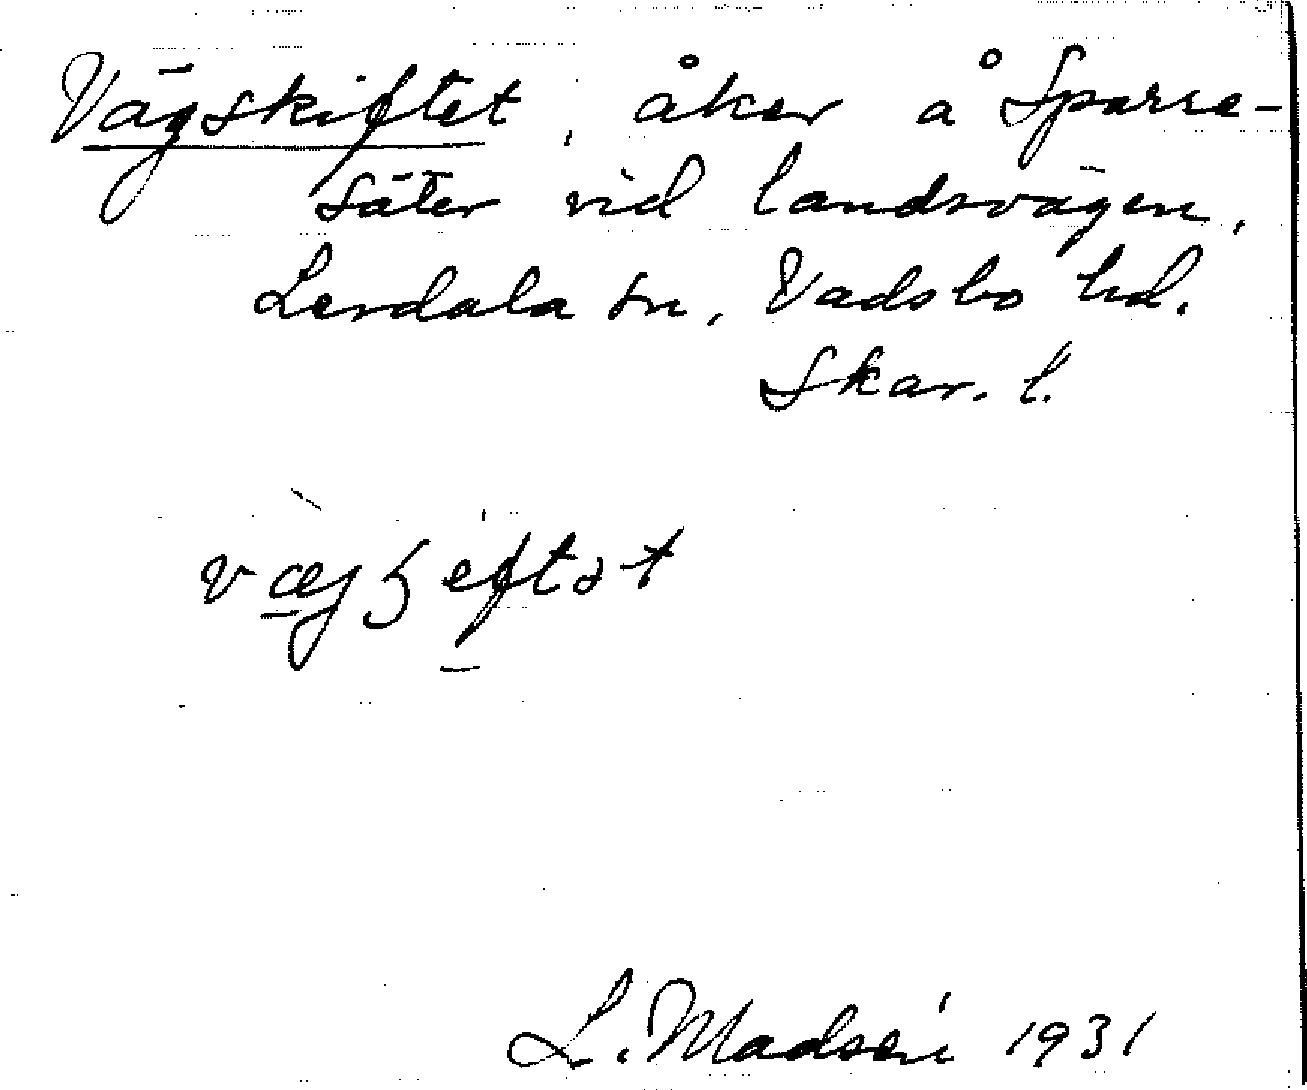 Vägskiftet, åker å Sparre-
säter vid landsvägen,
Lerdala sn, Vadsbo hd.
Skar. l.
L. Madsén 1931